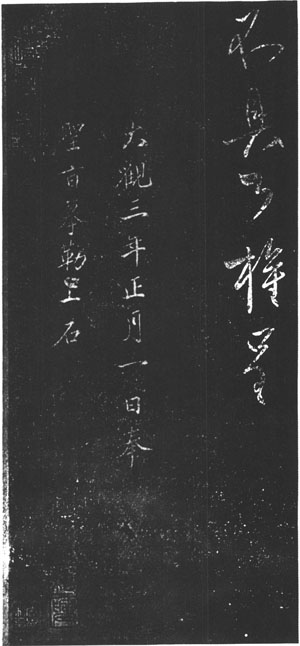 不具公權呈
大觀三年正月一日奉
聖旨摹勒上石